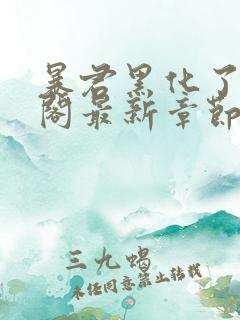 暴君黑化了
阁最新章节
三九蝎
未经同意禁止转载